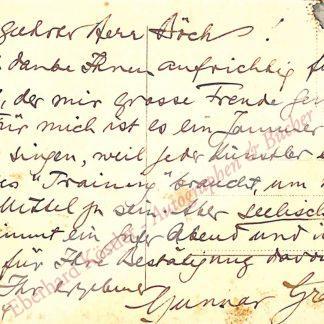 geehrter Herr Höchs!
danke Ihnen aufrichtig f
, der mir grosse Freude
für mich ist es ein Jammer
singen, weil jeder Künstler
"Training" braucht, um
Mittel zu sein. Aber seelisch
ein Abend und
für Ihre Bestätigung davon
Ihr ergebener
Gunnar Gra
Eberhard Köstler Autographen & Bücher